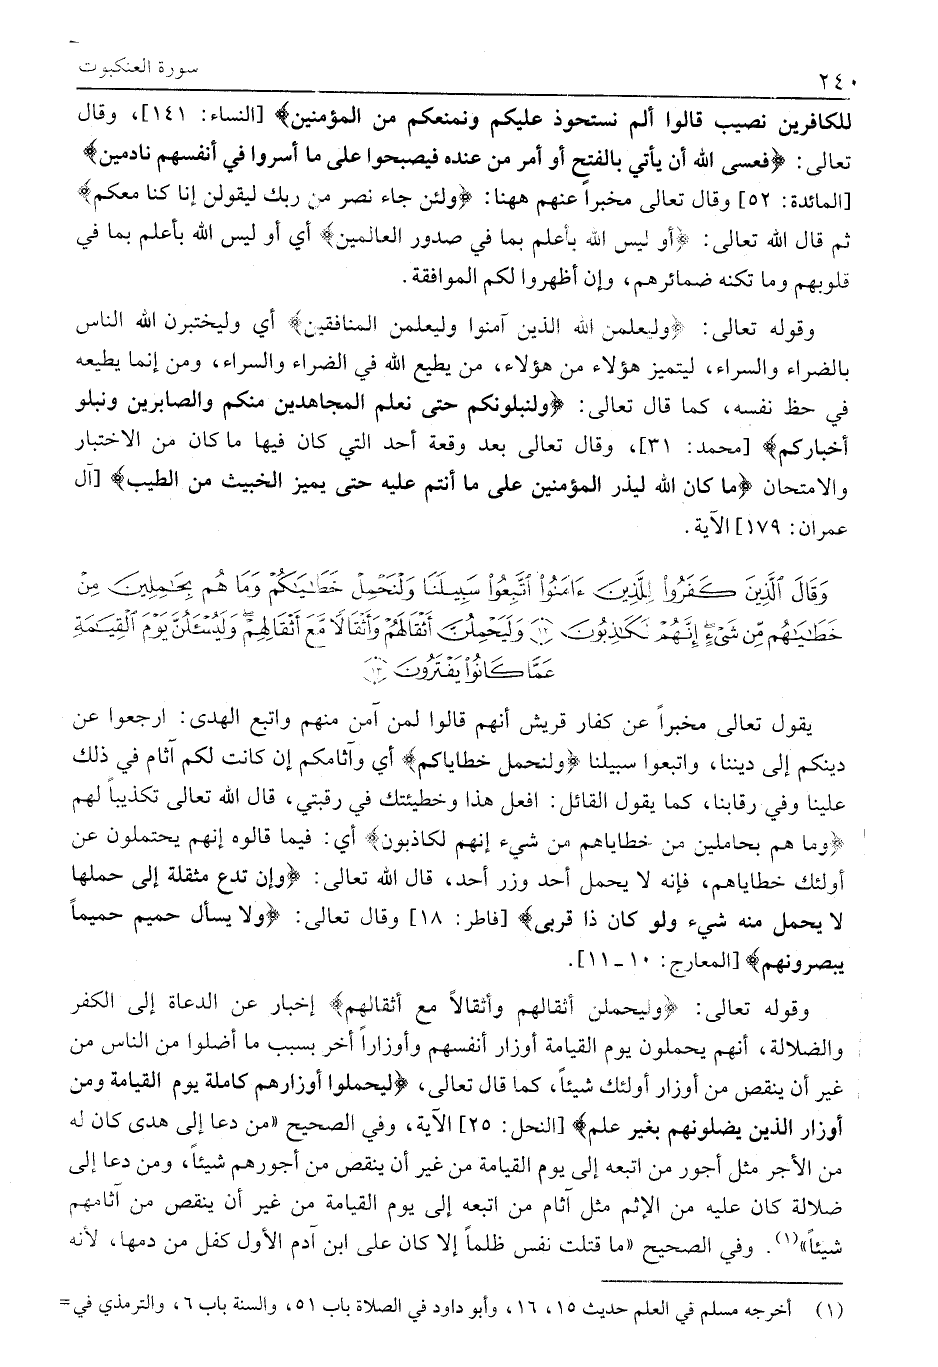 ٢٤٠
سورة العنكبوت
للكافرين نصيب قالوا ألم نستحوذ عليكم ونمنعكم من المؤمنين﴾ [النساء: ١٤١]، وقال
تعالى: ﴿فعسى الله أن يأتي بالفتح أو أمر من عنده فيصبحوا على ما أسروا في أنفسهم نادمين﴾
[المائدة: ٥٢] وقال تعالى مخبراً عنهم ههنا: ﴿ولئن جاء نصر من ربك ليقولن إنا كنا معكم﴾
ثم قال الله تعالى: ﴿أو ليس الله بأعلم بما في صدور العالمين﴾ أي أو ليس الله بأعلم بما في
قلوبهم وما تكنه ضمائرهم، وإن أظهروا لكم الموافقة.
وقوله تعالى: ﴿وليعلمن الله الذين آمنوا وليعلمن المنافقين﴾ أي وليختبرن الله الناس
بالضراء والسراء، ليتميز هؤلاء من هؤلاء، من يطيع الله في الضراء والسراء، ومن إنما يطيعه
في حظ نفسه، كما قال تعالى: ﴿ولنبلونكم حتى نعلم المجاهدين منكم والصابرين ونبلو
أخباركم﴾ [محمد: ٣١]، وقال تعالى بعد وقعة أحد التي كان فيها ما كان من الاختبار
والامتحان ﴿ما كان الله ليذر المؤمنين على ما أنتم عليه حتى يميز الخبيث من الطيب﴾ [آل
عمران: ١٧٩] الآية.
وَقَالَ ٱلَّذِينَ كَفَرُواْ لِلَّذِينَ ءَامَنُواْ ٱتَّبِعُواْ سَبِيلَنَا وَلْنَحْمِلْ خَطَٰيَٰكُمْ وَمَا هُم بِحَٰمِلِينَ مِنْ
خَطَٰيَٰهُم مِّن شَىْءٍ ۖ إِنَّهُمْ لَكَٰذِبُونَ ﴿١٢﴾ وَلَيَحْمِلُنَّ أَثْقَالَهُمْ وَأَثْقَالًا مَّعَ أَثْقَالِهِمْ ۖ وَلَيُسْـَٔلُنَّ يَوْمَ ٱلْقِيَٰمَةِ
عَمَّا كَانُواْ يَفْتَرُونَ ﴿١٣﴾
يقول تعالى مخبراً عن كفار قريش أنهم قالوا لمن آمن منهم واتبع الهدى: ارجعوا عن
دينكم إلى ديننا، واتبعوا سبيلنا ﴿ولنحمل خطاياكم﴾ أي وآثامكم إن كانت لكم آثام في ذلك
علينا وفي رقابنا، كما يقول القائل: افعل هذا وخطيئتك في رقبتي، قال الله تعالى تكذيباً لهم
﴿وما هم بحاملين من خطاياهم من شيء إنهم لكاذبون﴾ أي: فيما قالوه إنهم يحتملون عن
أولئك خطاياهم، فإنه لا يحمل أحد وزر أحد، قال الله تعالى: ﴿وإن تدع مثقلة إلى حملها
لا يحمل منه شيء ولو كان ذا قربى﴾ [فاطر: ١٨] وقال تعالى: ﴿ولا يسأل حميم حميماً
يبصرونهم﴾ [المعارج: ١٠ - ١١].
وقوله تعالى: ﴿وليحملن أثقالهم وأثقالاً مع أثقالهم﴾ إخبار عن الدعاة إلى الكفر
والضلالة، أنهم يحملون يوم القيامة أوزار أنفسهم وأوزاراً أخر بسبب ما أضلوا من الناس من
غير أن ينقص من أوزار أولئك شيئاً، كما قال تعالى، ﴿ليحملوا أوزارهم كاملة يوم القيامة ومن
أوزار الذين يضلونهم بغير علم﴾ [النحل: ٢٥] الآية، وفي الصحيح «من دعا إلى هدى كان له
من الأجر مثل أجور من اتبعه إلى يوم القيامة من غير أن ينقص من أجورهم شيئاً، ومن دعا إلى
ضلالة كان عليه من الإثم مثل آثام من اتبعه إلى يوم القيامة من غير أن ينقص من آثامهم
شيئاً»(١). وفي الصحيح «ما قتلت نفس ظلماً إلا كان على ابن آدم الأول كفل من دمها، لأنه
(١) أخرجه مسلم في العلم حديث ١٥، ١٦، وأبو داود في الصلاة باب ٥١، والسنة باب ٦، والترمذي في =